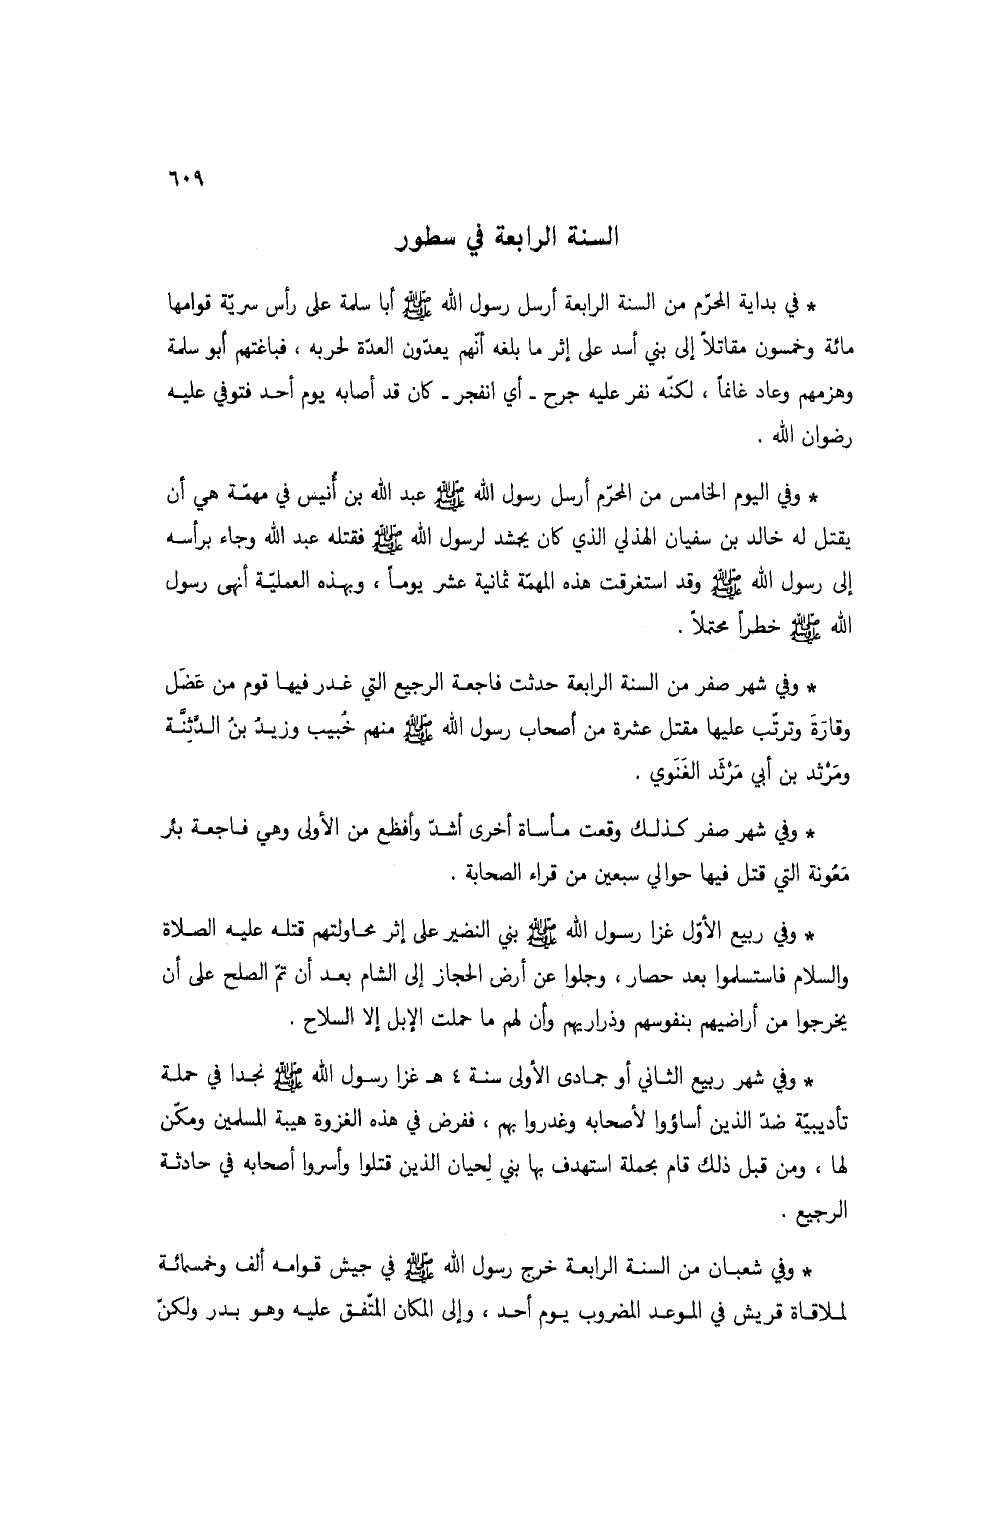 ٦٠٩
السنة الرابعة في سطور
* في بداية المحرّم من السنة الرابعة أرسل رسول الله ﷺ أبا سلمة على رأس سريّة قوامها
مائة وخمسون مقاتلاً إلى بني أسد على إثر ما بلغه أنّهم يعدّون العدّة لحربه ، فباغتهم أبو سلمة
وهزمهم وعاد غانماً ، لكنّه نفر عليه جرح ـ أي انفجر ـ كان قد أصابه يوم أحد فتوفي عليه
رضوان الله .
* وفي اليوم الخامس من المحرّم أرسل رسول الله ﷺ عبد الله بن أُنيس في مهمّة هي أن
يقتل له خالد بن سفيان الهذلي الذي كان يحشد لرسول الله ﷺ فقتله عبد الله وجاء برأسه
إلى رسول الله ﷺ وقد استغرقت هذه المهمّة ثمانية عشر يوماً ، وبهذه العمليّة أنهى رسول
الله ﷺ خطراً محتملاً .
* وفي شهر صفر من السنة الرابعة حدثت فاجعة الرجيع التي غدر فيها قوم من عَضَل
وقارَةَ وترتّب عليها مقتل عشرة من أصحاب رسول الله ﷺ منهم خُبيب وزيدُ بنُ الدَّثِنَّة
ومَرْثد بن أبي مَرْثَد الغَنَوي .
* وفي شهر صفر كذلك وقعت مأساة أخرى أشدّ وأفظع من الأولى وهي فاجعة بئر
مَعُونة التي قتل فيها حوالي سبعين من قراء الصحابة .
* وفي ربيع الأوّل غزا رسول الله ﷺ بني النضير على إثر محاولتهم قتله عليه الصلاة
والسلام فاستسلموا بعد حصار ، وجلوا عن أرض الحجاز إلى الشام بعد أن تمّ الصلح على أن
يخرجوا من أراضيهم بنفوسهم وذراريهم وأن لهم ما حملت الإبل إلا السلاح .
* وفي شهر ربيع الثاني أو جمادى الأولى سنة ٤ هـ غزا رسول الله ﷺ نجدا في حملة
تأديبيّة ضدّ الذين أساؤوا لأصحابه وغدروا بهم ، ففرض في هذه الغزوة هيبة المسلمين ومكّن
لها ، ومن قبل ذلك قام بحملة استهدف بها بني لِحيان الذين قتلوا وأسروا أصحابه في حادثة
الرجيع .
* وفي شعبان من السنة الرابعة خرج رسول الله ﷺ في جيش قوامه ألف وخمسمائة
لملاقاة قريش في الموعد المضروب يوم أحد ، وإلى المكان المتّفق عليه وهو بدر ولكنّ